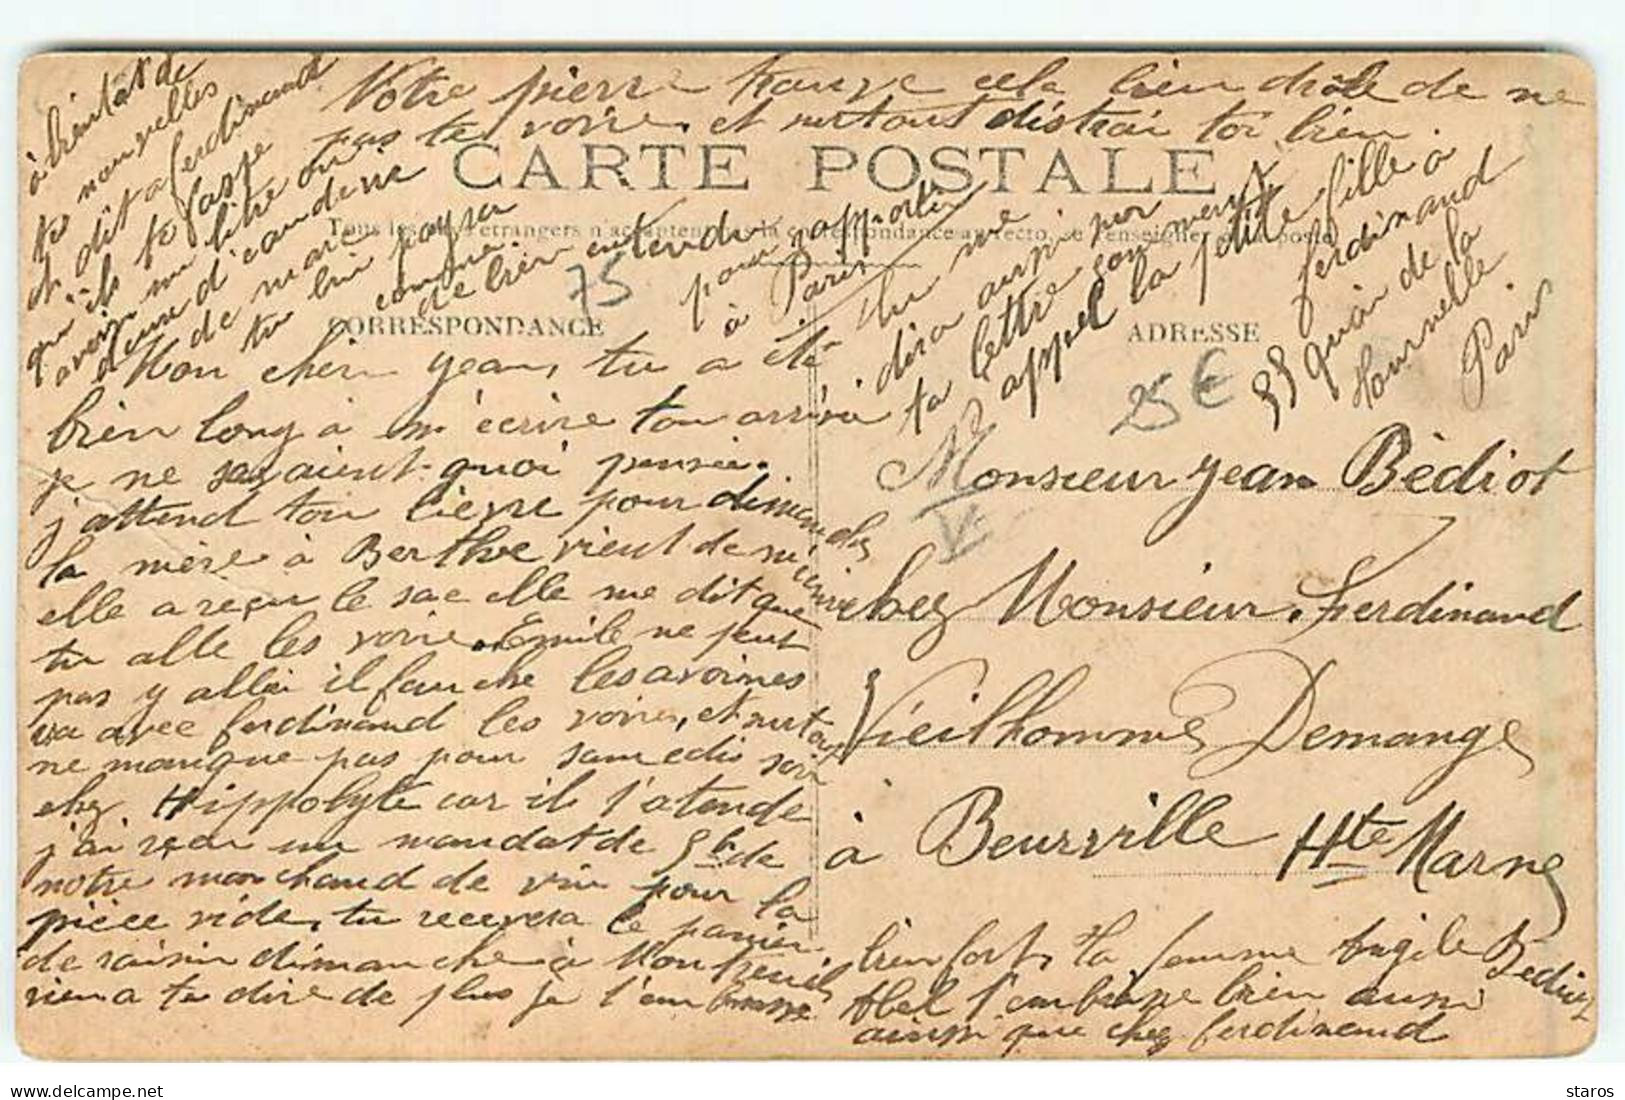 Votre pierre trouve cela bien drôle de ne
pas te voire, et surtout distrai toi bien.
CARTE POSTALE
Tous les pays étrangers n'acceptent pas la correspondance au recto, se renseigner à la poste
CORRESPONDANCE
ADRESSE
75
25 €
à bientôt de
tes nouvelles
et dit a ferdinand
qu'ils te fasse
avoir un litre ou
deux d'eau de vie
de marc
tu lui payera
comme
de bien entendu
pour rapporter
à Paris
Tu me
dira aussi par
ta lettre comment
appel la petite fille a
ferdinand
35 quai de la
tournelle
Paris
Mon cher jean, tu a été
bien long a m'écrire ton arrivé
je ne savaient quoi pensée.
j'attend ton lievre pour dimanche
la mère à Berthe vient de m'écrire
elle a reçu le sac elle me dit que
tu alle les voire. Emile ne peut
pas y aller il fauche les avoines
va avec ferdinand les voires, et surtout
ne manque pas pour samedis soir
chez Hippolyte car il t'atende
j'ai reçu un mandat de 5f de
notre marchand de vin pour la
pièce vide, tu recevera le panier
de raisin dimanche à Montreuil
rien a te dire de plus je t'embrasse
Monsieur jean Bèdiot
chez Monsieur Ferdinand
Vieilhomme Demange
à Beurville Hte Marne
bien fort, Ta femme Angèle Bediot
Abel t'embrasse bien aussi
ainsi que chez ferdinand
staros